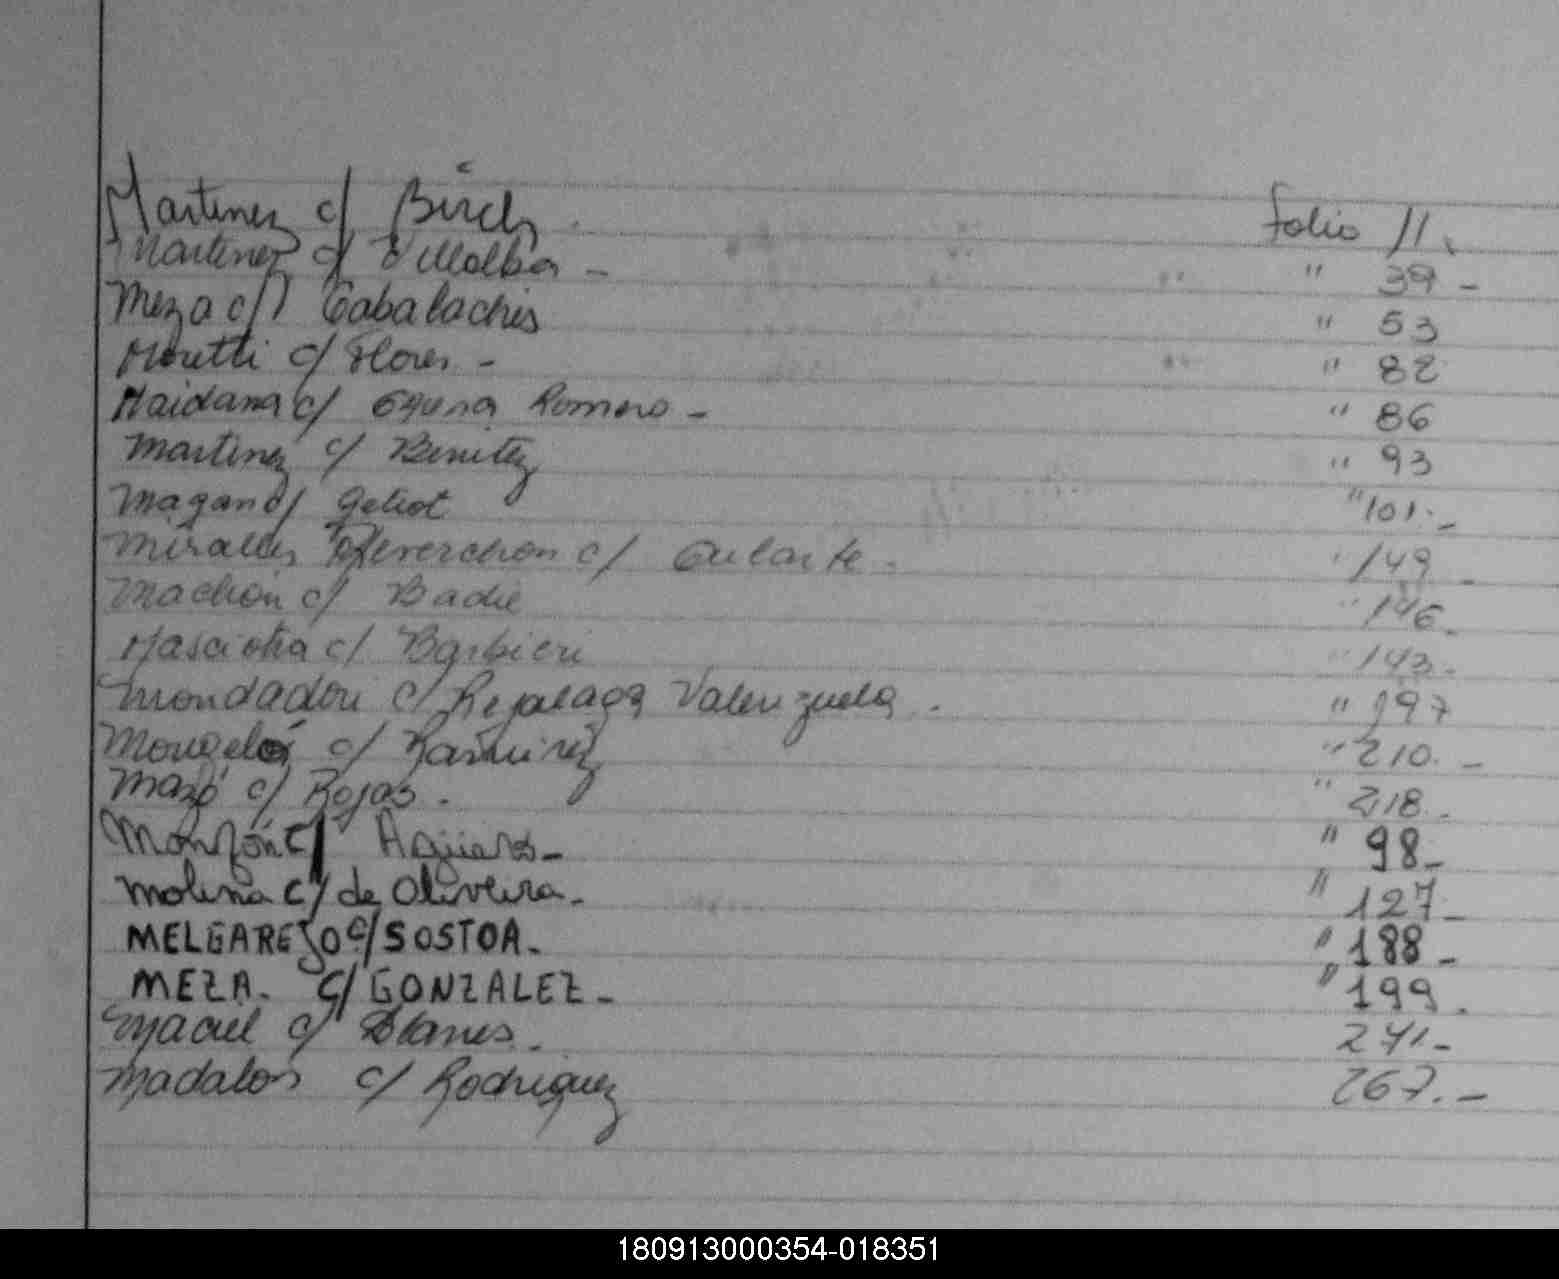 Martinez c/ Birch. Folio 11.
Martinez c/ Villalba - " 39 -
Meza c/ Cabalachis " 53
Moretti c/ Flores - " 82
Maidana c/ Romero - " 86
Martinez c/ Benitez " 93
Magan c/ Geliot " 101.-
Miralles c/ Gularte. " 149 -
Machon c/ Badie " 146.
Masciotra c/ Barbieri " 143.-
Mondadori c/ Rejalaga Valenzuela. " 197
Mongelós c/ Ramirez " 210. -
Mazó c/ Rojas. " 218.-
Monzón c/ Aguiar " 98-
Molina c/ de Oliveira. " 127-
MELGAREJO C/ SOSTOA. " 188 -
MEZA. C/ GONZALEZ - " 199.
Maciel c/ Blanes. 241.-
Madalos c/ Rodriguez 267.-
180913000354-018351